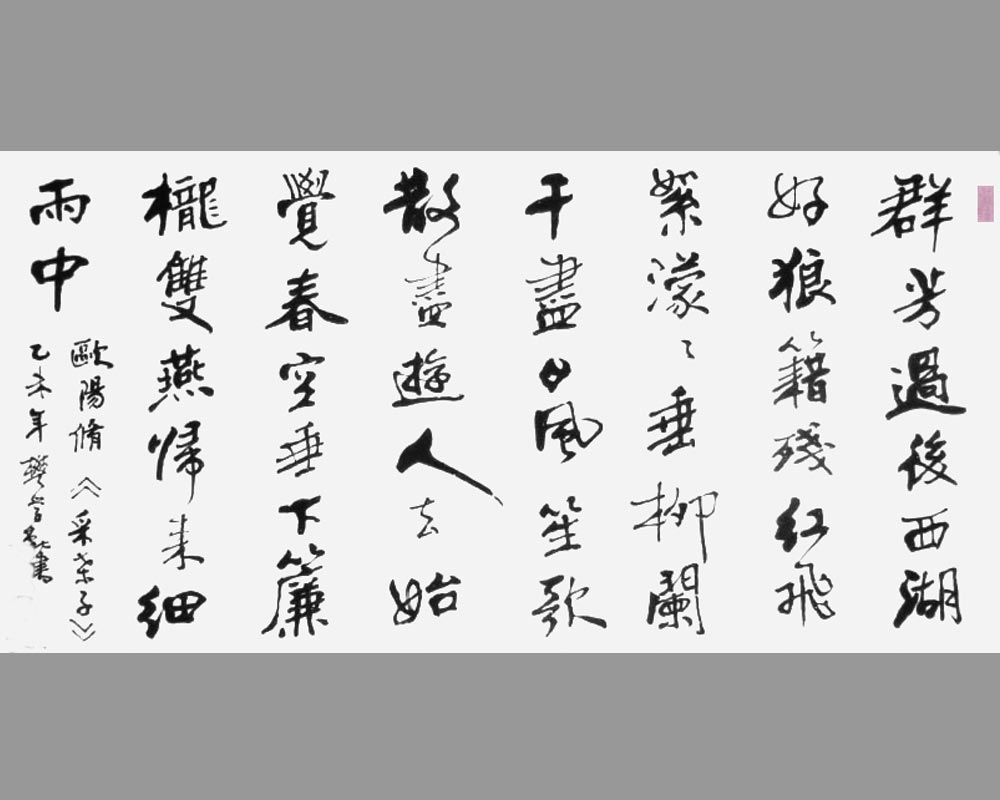 群芳過後西湖
好狼籍殘紅飛
絮濛々垂柳闌
干盡日風笙歌
散盡遊人去始
覺春空垂下簾
櫳雙燕帰来細
雨中
歐陽脩《采桑子》
乙未年書